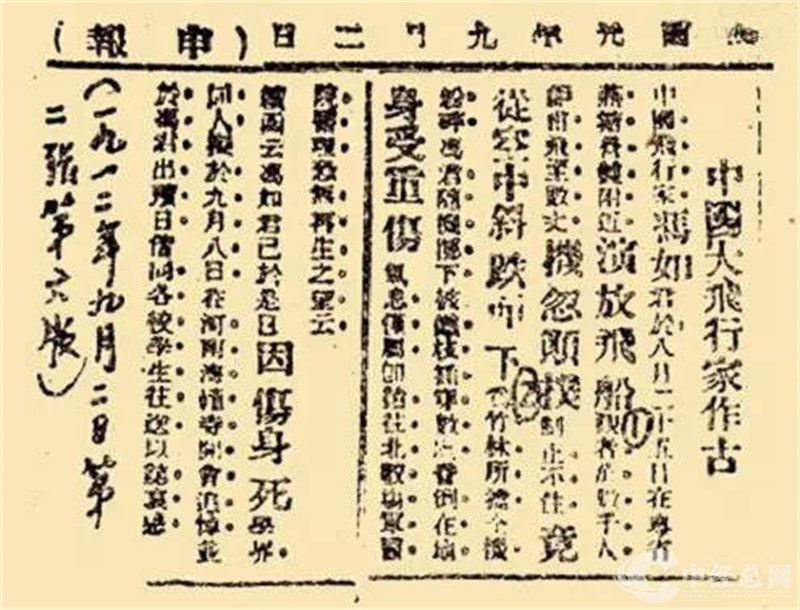 民國元年九月二日（申報）
中國大飛行家作古
中國飛行家馮如君於八月二十五日在粵省
附近演放飛船觀者約數千人
飛至數丈機忽頭棧制止不住竟
從空中斜跌而下為竹林所擋全機
粉碎馮君隨機墮下被竹枝插傷數處昏倒在地
身受重傷氣息僅屬即抬往北較場軍醫
院醫理救無再生之望云
續函云馮如君已於是日因傷身死學界
同人擬於九月八日在河南海幢寺開會追悼並
於馮君出殯日偕同各校學生往送以誌哀悼
（一九一二年九月二日第
二張第六版）
①
②
中经总网